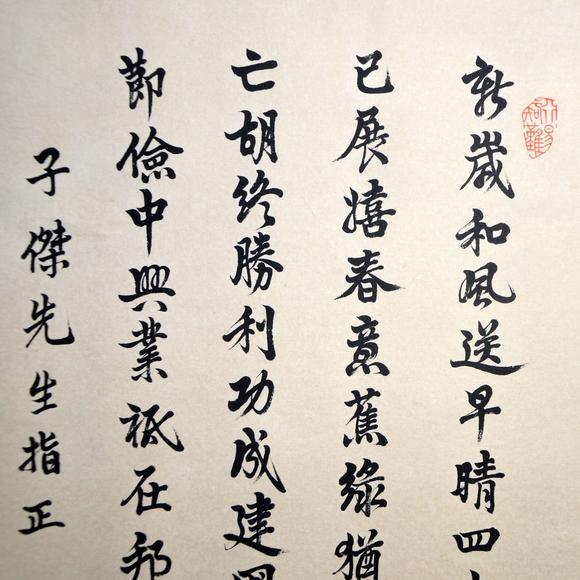 新歲和風送早晴四
已展嬉春意蕉綠猶
亡胡終勝利功成建
莭儉中興業祗在邦
子傑先生指正